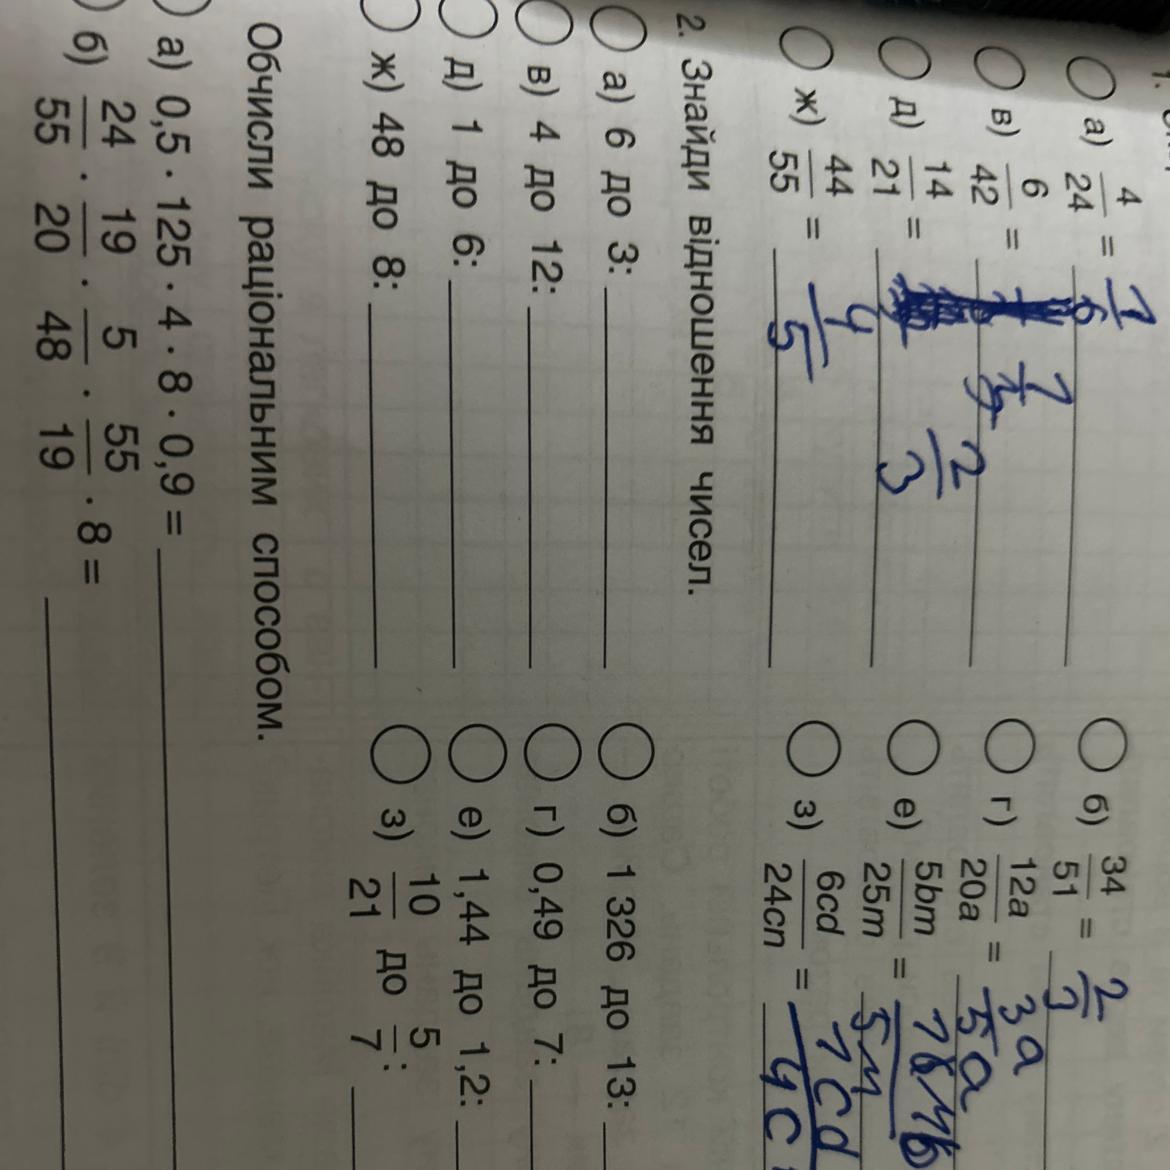 1.
а) 4/24 = 1/6
б) 34/51 = 2/3
в) 6/42 = 1/7
г) 12a/20a = 3a/5a
д) 14/21 = 2/3
е) 5bm/25m =
ж) 44/55 = 4/5
з) 6cd/24cn = 1cd/4c
2. Знайди відношення чисел.
а) 6 до 3:
б) 1 326 до 13:
в) 4 до 12:
г) 0,49 до 7:
д) 1 до 6:
е) 1,44 до 1,2:
ж) 48 до 8:
з) 10/21 до 5/7:
Обчисли раціональним способом.
а) 0,5 · 125 · 4 · 8 · 0,9 =
б) 24/55 · 19/20 · 5/48 · 55/19 · 8 =